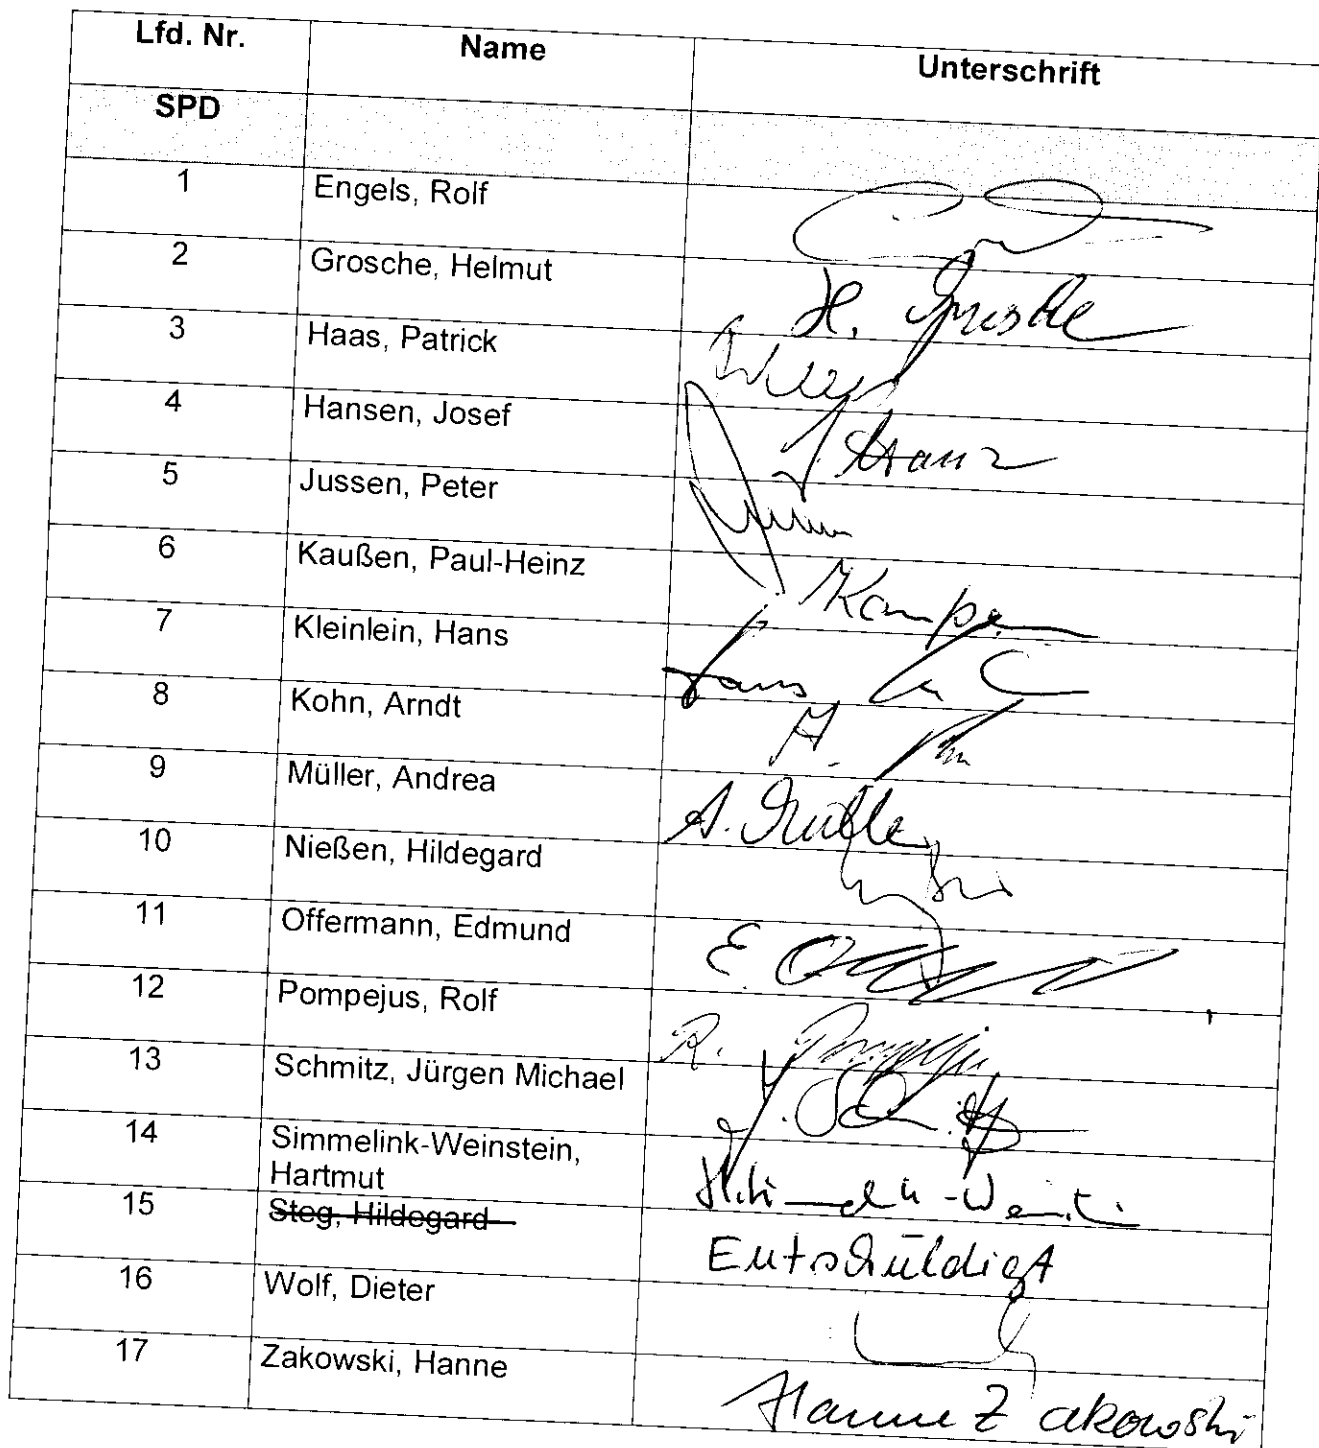 Lfd. Nr. Name Unterschrift
SPD
1 Engels, Rolf
2 Grosche, Helmut H. Grosche
3 Haas, Patrick
4 Hansen, Josef
5 Jussen, Peter
6 Kaußen, Paul-Heinz
7 Kleinlein, Hans Hans
8 Kohn, Arndt A.
9 Müller, Andrea A. Müller
10 Nießen, Hildegard
11 Offermann, Edmund E.
12 Pompejus, Rolf R. Pompejus
13 Schmitz, Jürgen Michael J. Schmitz
14 Simmelink-Weinstein,
Hartmut
15 Steg, Hildegard Entschuldigt
16 Wolf, Dieter
17 Zakowski, Hanne Hanne Zakowski